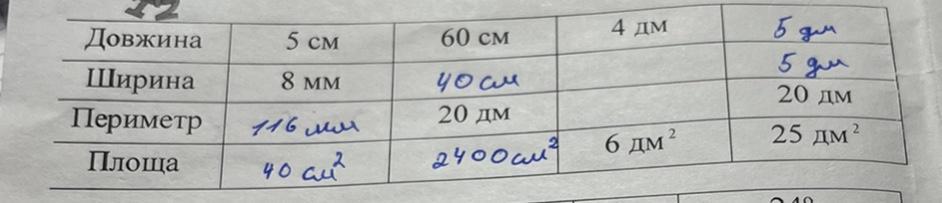 12
Довжина 5 см 60 см 4 дм 5 дм
Ширина 8 мм 40 см 5 дм
Периметр 116 мм 20 дм 20 дм
Площа 40 см² 2400 см² 6 дм² 25 дм²